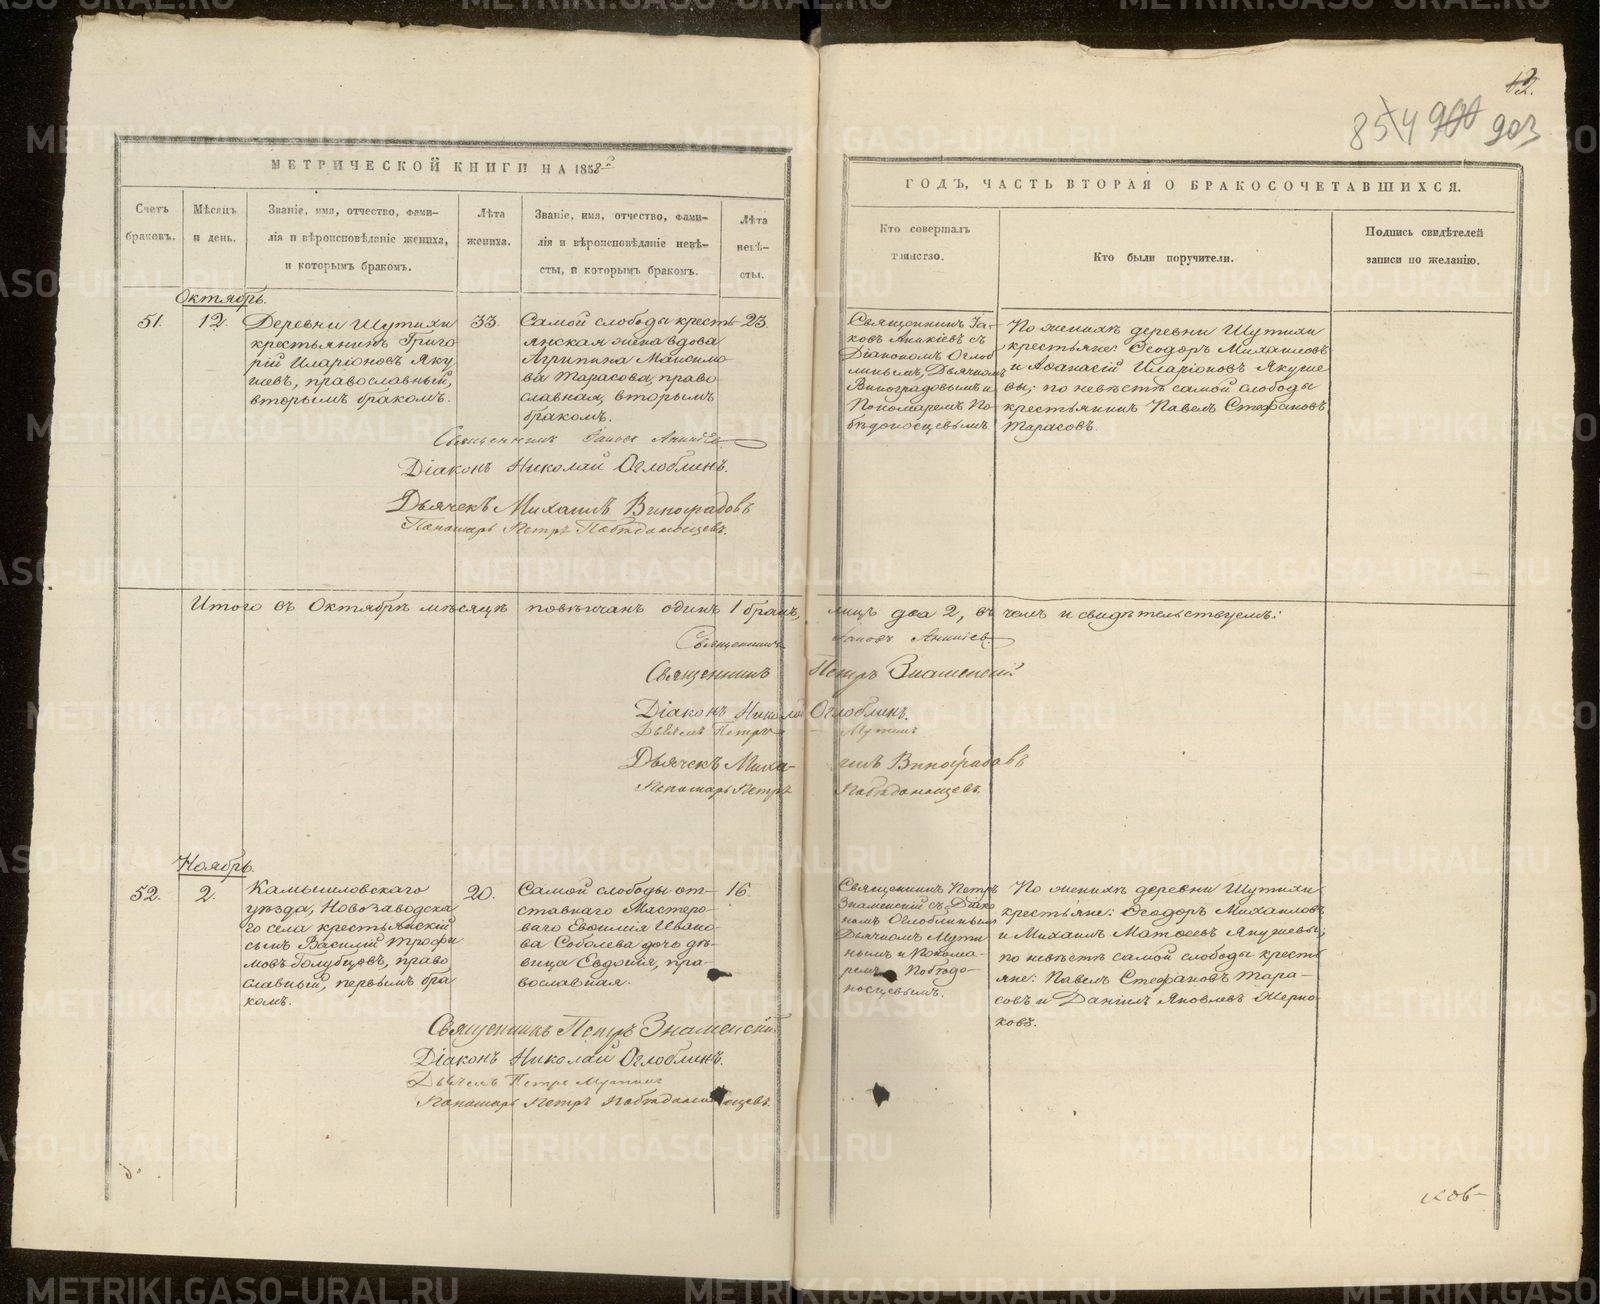 42.
854 900 903
МЕТРИЧЕСКОЙ КНИГИ НА 1858
ГОДЪ, ЧАСТЬ ВТОРАЯ О БРАКОСОЧЕТАВШИХСЯ.
Счетъ
браковъ.
Мѣсяцъ
и день.
Званіе, имя, отчество, фами-
лія и вѣроисповѣданіе жениха,
и которымъ бракомъ.
Лѣта
жениха.
Званіе, имя, отчество, фами-
лія и вѣроисповѣданіе невѣ-
сты, и которымъ бракомъ.
Лѣта
невѣ-
сты.
Кто совершалъ
таинство.
Кто были поручители.
Подпись свидѣтелей
записи по желанію.
Октябрь.
51.
12.
Деревни Шутихи
крестьянинъ Григо
рій Иларіоновъ Яку
шевъ, православный,
вторымъ бракомъ.
33.
Самой слободы кресть-
янская жена вдова
Агрипина Максимо
ва Тарасова, право
славная, вторымъ
бракомъ.
23.
Священникъ Іа-
ковъ Аникіевъ съ
Діакономъ Оглоб
линымъ, Дьячкомъ
Виноградовымъ и
Пономаремъ По-
бѣдоносцевымъ.
По женихѣ деревни Шутихи
крестьяне: Ѳеодоръ Михаиловъ
и Аѳанасій Иларіоновъ Якуше
вы; по невѣстѣ самой слободы
крестьянинъ Павелъ Стефановъ
Тарасовъ.
Священникъ Іаковъ Аникіевъ
Діаконъ Николай Оглоблинъ.
Дьячекъ Михаилъ Виноградовъ
Пономарь Петръ Побѣдоносцевъ.
Итого въ Октябрѣ мѣсяцѣ повѣнчанъ одинъ 1 бракъ, лицъ два 2, въ чемъ и свидѣтельствуемъ:
Священникъ Іаковъ Аникіевъ
Священникъ Петръ Знаменскій
Діаконъ Николай Оглоблинъ.
Дьячекъ Петръ Мутинъ
Дьячекъ Миха- илъ Виноградовъ
Пономарь Петръ Побѣдоносцевъ.
Ноябрь.
52.
2.
Камышловскаго
уѣзда, Новозаводска
го села крестьянскій
сынъ Василій Трофи
мовъ Голубцовъ, право
славный, первымъ бра
комъ.
20.
Самой слободы от-
ставнаго Мастеро-
ваго Евѳимія Ивано-
ва Соболева дочь дѣ-
вица Евдокія, пра-
вославная.
16.
Священникъ Петръ
Знаменскій съ Діако
номъ Оглоблинымъ
Дьячкомъ Мути
нымъ и Понома-
ремъ Побѣдо-
носцевымъ.
По женихѣ деревни Шутихи
крестьяне: Ѳеодоръ Михаиловъ
и Михаилъ Матѳеевъ Якушевы;
по невѣстѣ самой слободы кресть
яне: Павелъ Стефановъ Тара-
совъ и Даніилъ Яковлевъ Жерно
ковъ.
Священникъ Петръ Знаменскій
Діаконъ Николай Оглоблинъ.
Дьячекъ Петръ Мутинъ
Пономарь Петръ Побѣдоносцевъ.
METRIKI.GASO-URAL.RU